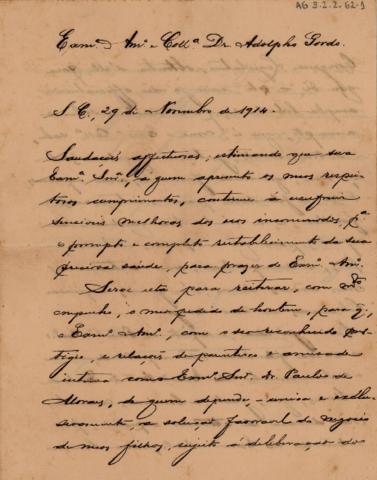 AG 3.2.2.62-1
Exmº Amº e Collª Dr. Adolpho Gordo.
S. C., 29 de Novembro de 1914.
Saudações affectuosas, estimando que sua
Exmª Snrª, a quem apresento os meus respei-
tosos cumprimentos, continue a usufruir
sensiveis melhoras dos seus incommodos, pª
o prompto e completo restabelecimento de sua
preciosa saúde, para prazer do Exmº Amº.
Serve esta para reiterar, com
empenho, o meu pedido de hontem, para q,
o Exmº Amº, com o seo reconhecido pres-
tigio, e relações de parentesco e amisade
intima com o Exmº Snr. Dr. Paulo de
Moraes, de quem depende, - unica e exclu-
sivamente, a solução favoravel do negocio
de meos filhos, sujeito á deliberação dos